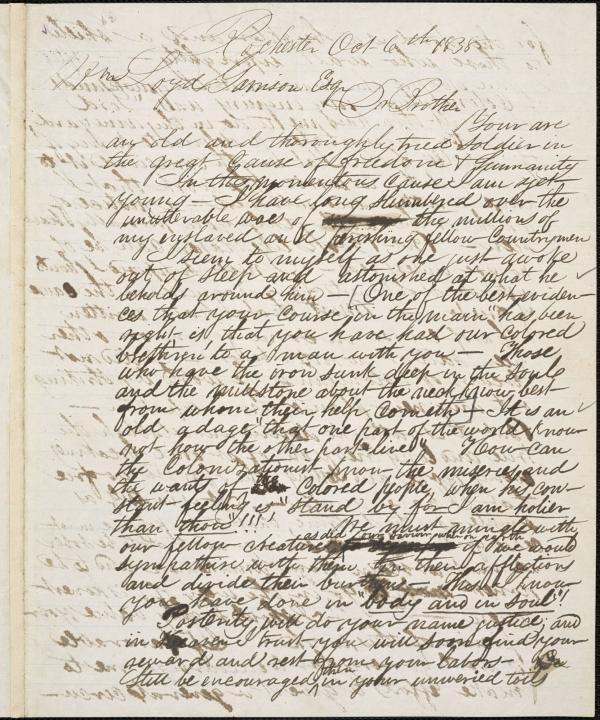 Rochester Oct 6th 1838
Wm Loyd Garrison Esqr
Dr Brother
Your are
an old and thoroughly tried soldier in
the great Cause of Freedom & Humanity
In this momentous Cause I am yet
young — I have long slumbered over the
unutterable woes of the millions of
my enslaved and perishing fellow Countrymen
I seem to myself as one just awoke
out of sleep and astonished at what he
beholds around him — [One of the best eviden-
ces that your course "in the main" has been
right is, that you have had our colored
brethren to a man with you — Those
who have the iron sunk deep in the souls
and the millstone about the neck, know best
from whom their help cometh] — It is an
old adage, "that one part of the world know
not how the other part lives" How can
the Colonizationist know the miseries and
the wants of the Colored people, when his con-
stant feeling is "stand by for I am holier
than thou"!!! We must mingle with
our fellow creatures as did our Saviour when on earth if we would
sympathise with them, win their affections
and divide their burthens — This I know
you have done in "body and in soul"!
Posterity will do your name justice, and
in Heaven I trust you will soon find your
reward and rest from your labors —
Still be encouraged then in your unweried toil